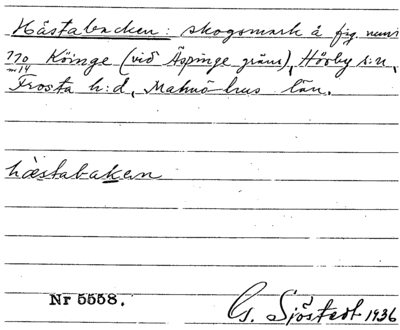 Hästabacken: skogsmark å fig. num
No Köinge (vid Äspinge gräns), Hörby s:n,
m 14
Frosta h:d, Malmöhus län.
hästabaken
Nr 5558.
G. Sjöstedt 1936